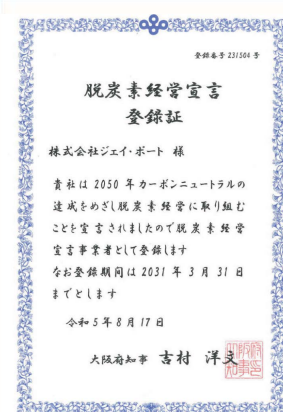 登録番号 231504 号
脱炭素経営宣言
登録証
株式会社ジェイ・ポート 様
貴社は 2050 年カーボンニュートラルの
達成をめざし脱炭素経営に取り組む
ことを宣言されましたので脱炭素経営
宣言事業者として登録します
なお登録期間は 2031 年 3 月 31 日
までとします
令和 5 年 8 月 17 日
大阪府知事 吉村 洋文